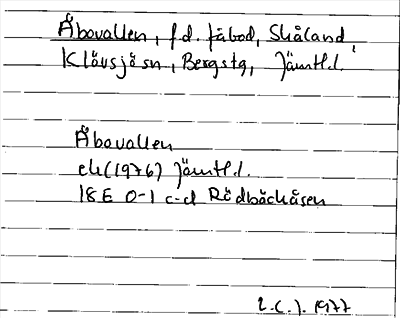 Åbovallen, f.d. fäbod, Skåland,
Klövsjö sn, Bergstg, Jämtl.l.
Åbovallen
ek (1976) Jämtl.l.
18E 0-1 c-d Rödbäckåsen
L.C.J. 1977